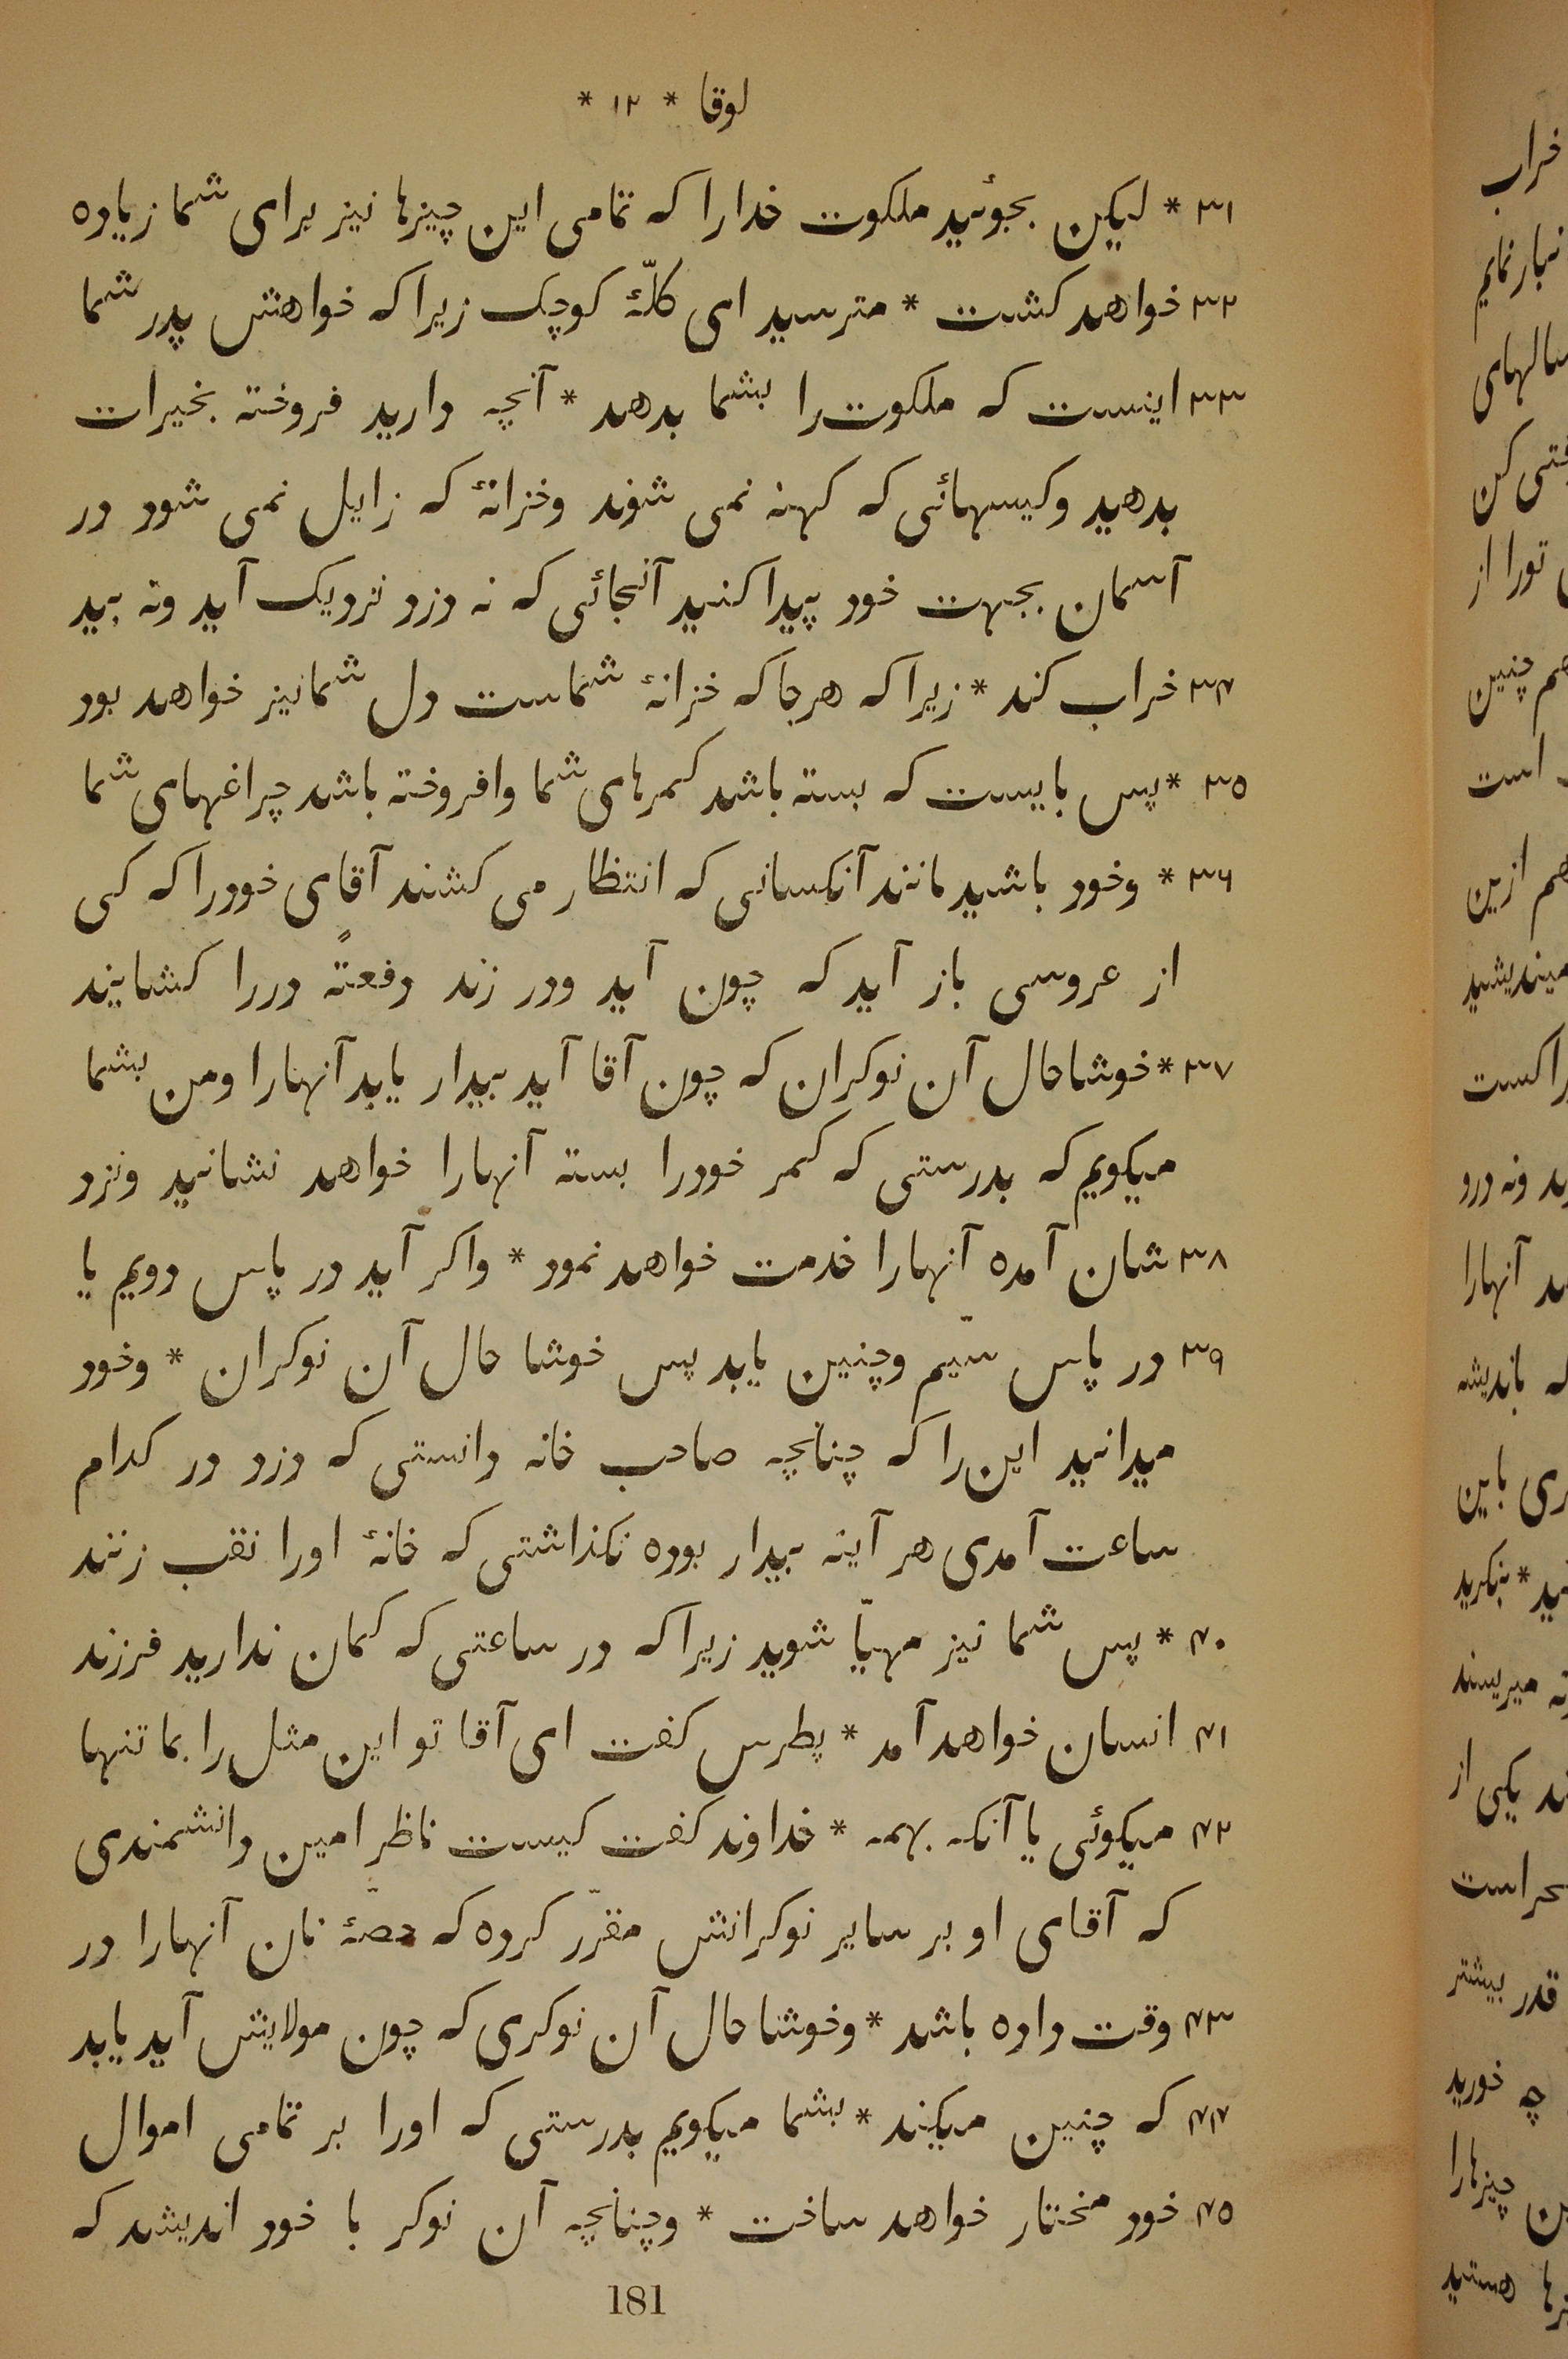 لوقا * ۱۲ *
۳۱ * لیکن بجوئید ملکوت خدارا که تمامی این چیزها نیز برای شما زیاده
۳۲ خواهد کشت * مترسید ای کلّهٔ کوچک زیرا که خواهش پدر شما
۳۳ اینست که ملکوت را بشما بدهد * آنچه دارید فروخته بخیرات
بدهید وکیسهائی که کهنه نمی شوند وخزانهٔ که زایل نمی شود در
آسمان بجهت خود پیدا کنید آنجائی که نه دزد نزدیک آید ونه بید
۳۴ خراب کند * زیرا که هرجا که خزانهٔ شماست دل شما نیز خواهد بود
۳۵ * پس بایست که بسته باشد کمرهای شما وافروخته باشد چراغهای شما
۳۶ * وخود باشید مانند آنکسانی که انتظار می کشند آقای خودرا که کی
از عروسی باز آید که چون آید ودر زند دفعتهً دررا کشایند
۳۷ * خوشا حال آن نوکران که چون آقا آید بیدار یابد آنهارا ومن بشما
میکویم که بدرستی که کمر خودرا بسته آنهارا خواهد نشانید ونزد
۳۸ شان آمده آنهارا خدمت خواهد نمود * واکر آید در پاس دویم یا
۳۹ در پاس سیّم وچنین یابد پس خوشا حال آن نوکران * وخود
میدانید این را که چنانچه صاحب خانه دانستی که دزد در کدام
ساعت آمدی هر آینه بیدار بوده نکذاشتی که خانهٔ اورا نقب زنند
۴۰ * پس شما نیز مهیّا شوید زیرا که در ساعتی که کمان ندارید فرزند
۴۱ انسان خواهد آمد * پطرس کفت ای آقا تو این مثل را بما تنها
۴۲ میکوئی یا آنکه بهمه * خداوند کفت کیست ناظر امین دانشمندی
که آقای او بر سایر نوکرانش مقرّر کرده که حصّهٔ نان آنهارا در
۴۳ وقت داده باشد * وخوشا حال آن نوکری که چون مولایش آید یابد
۴۴ که چنین میکند * بشما میکویم بدرستی که اورا بر تمامی اموال
۴۵ خود مختار خواهد ساخت * وچنانچه آن نوکر با خود اندیشد که
181